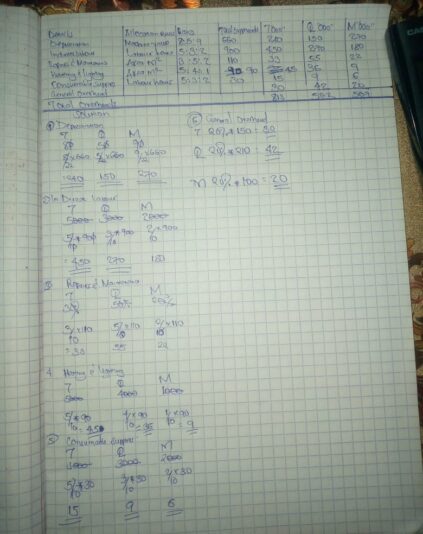 Details Allocation basis Ratio Total Expenditure T '000' Q '000' M '000'
Depreciation Machine value 8:5:9 660 240 150 270
Indirect labour Labour hours 5:3:2 900 450 270 180
Repairs & Maintenance Area M² 3:5:2 110 33 55 22
Heating & lighting Area M² 5:4:1 90 45 36 9
Consumable Supplies Labour hours 5:3:2 30 15 9 6
General overhead 30 42 20
Total overheads 813 562
Solution
① Depreciation
T Q M
8/22 × 660 5/22 × 660 9/22 × 660
= 240 150 270
⑥ General Overhead
T 20% × 150 = 30
Q 20% × 210 = 42
M 20% × 100 = 20
2 Indirect Labour
T Q M
5000 3000 2000
5/10 × 900 3/10 × 900 2/10 × 900
= 450 270 180
③ Repairs & Maintenance
T Q M
3/10 × 110 5/10 × 110 2/10 × 110
= 30 55 22
4. Heating & lighting
T Q M
5000 4000 1000
5/10 × 90 = 45 4/10 × 90 = 36 1/10 × 90 = 9
⑤ Consumable Supplies
T Q M
3000 2000
5/10 × 30 3/10 × 30 2/10 × 30
15 9 6